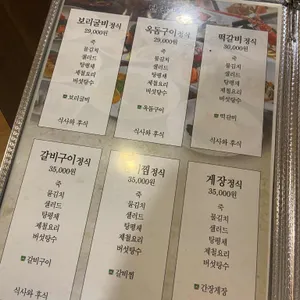 보리굴비정식
29,000원
죽
물김치
샐러드
탕평채
제철요리
버섯탕수
보리굴비
식사와 후식
옥돔구이정식
29,000원
죽
물김치
샐러드
탕평채
제철요리
버섯탕수
옥돔구이
식사와 후식
떡갈비정식
30,000원
죽
물김치
샐러드
탕평채
제철요리
버섯탕수
떡갈비
식사와 후식
갈비구이정식
35,000원
죽
물김치
샐러드
탕평채
제철요리
버섯탕수
갈비구이
식사와 후식
찜정식
35,000원
죽
물김치
샐러드
탕평채
제철요리
버섯탕수
갈비찜
식사와 후식
게장정식
35,000원
죽
물김치
샐러드
탕평채
제철요리
버섯탕수
간장게장
식사와 후식